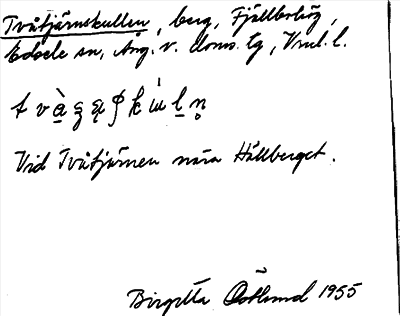 Tvåtjärnskullen, berg, Fjällbohög,
Edsele sn, Ång. v. doms. lg, Vrml. l.
Vid Tvåtjärnen nära Hållberget.
Birgitta Östlund 1955